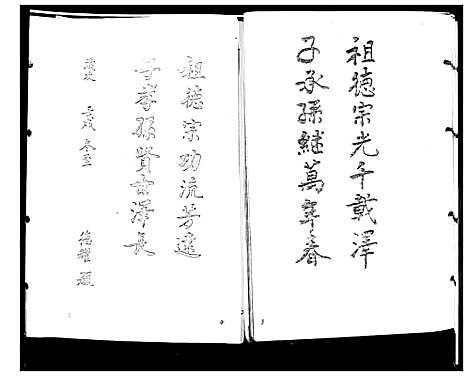 祖德宗光千載澤
子承孫繼萬年春
祖德宗功流芳遠
子孝孫賢世澤長
歲次 壬戌 冬至
德耀 題